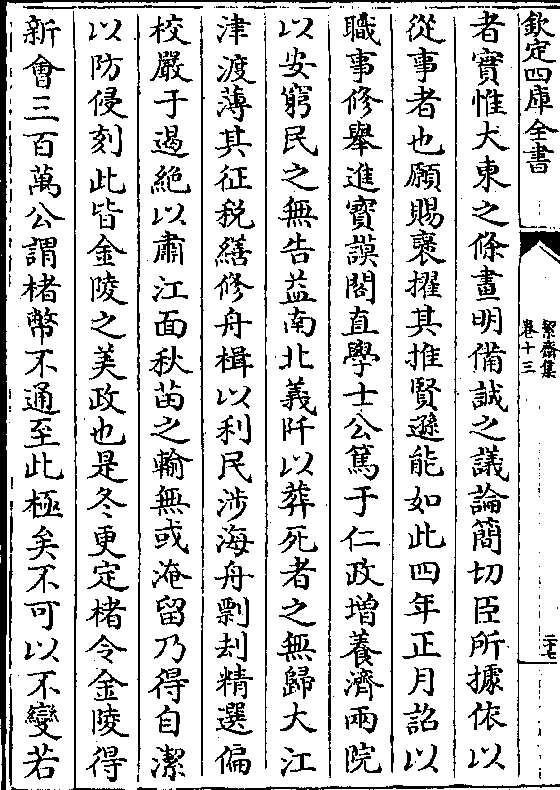 欽定四庫全書
絜齋集
卷十三
二十七
者實惟大東之條畫明備誠之議論簡切臣所據依以
從事者也願賜褒擢其推賢遜能如此四年正月詔以
職事修舉進寶謨閣直學士公篤于仁政增養濟兩院
以安窮民之無告益南北義阡以葬死者之無歸大江
津渡薄其征税繕修舟楫以利民涉海舟剽刦精選偏
校嚴于遏絶以肅江面秋苗之輸無或淹留乃得自潔
以防侵刻此皆金陵之美政也是冬更定楮令金陵得
新會三百萬公謂楮幣不通至此極矣不可以不變若